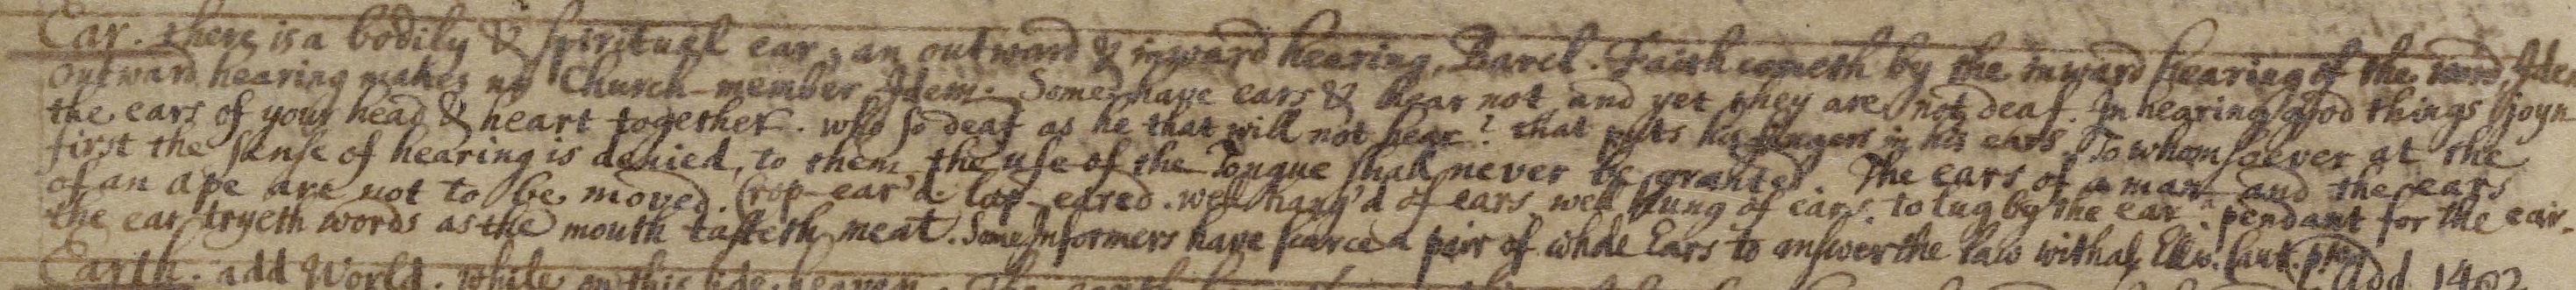 Ear. there is a bodily & spiritual ear, an outward & inward hearing, Barcl. Faith cometh by the inward hearing of the word, Ide
outward hearing makes no Church-member Idem. Some have ears & hear not, and yet they are not deaf. In hearing good things joyn
the ears of your head & heart together. who so deaf as he that will not hear? that puts his fingers in his ears. To whomsoever at the
first the sense of hearing is denied, to them the use of the Tongue shall never be granted. The ears of a man and the ears
of an ape are not to be moved. Crop-ear'd. lap-eared. well hang'd of ears. well hung of ears. to lug by the ear. a pendant for the ear.
the ear tryeth words as the mouth tasteth meat. Some Informers have scarce a pair of whole Ears to answer the law withal
Earth. add World. while on this side heaven. add 1402